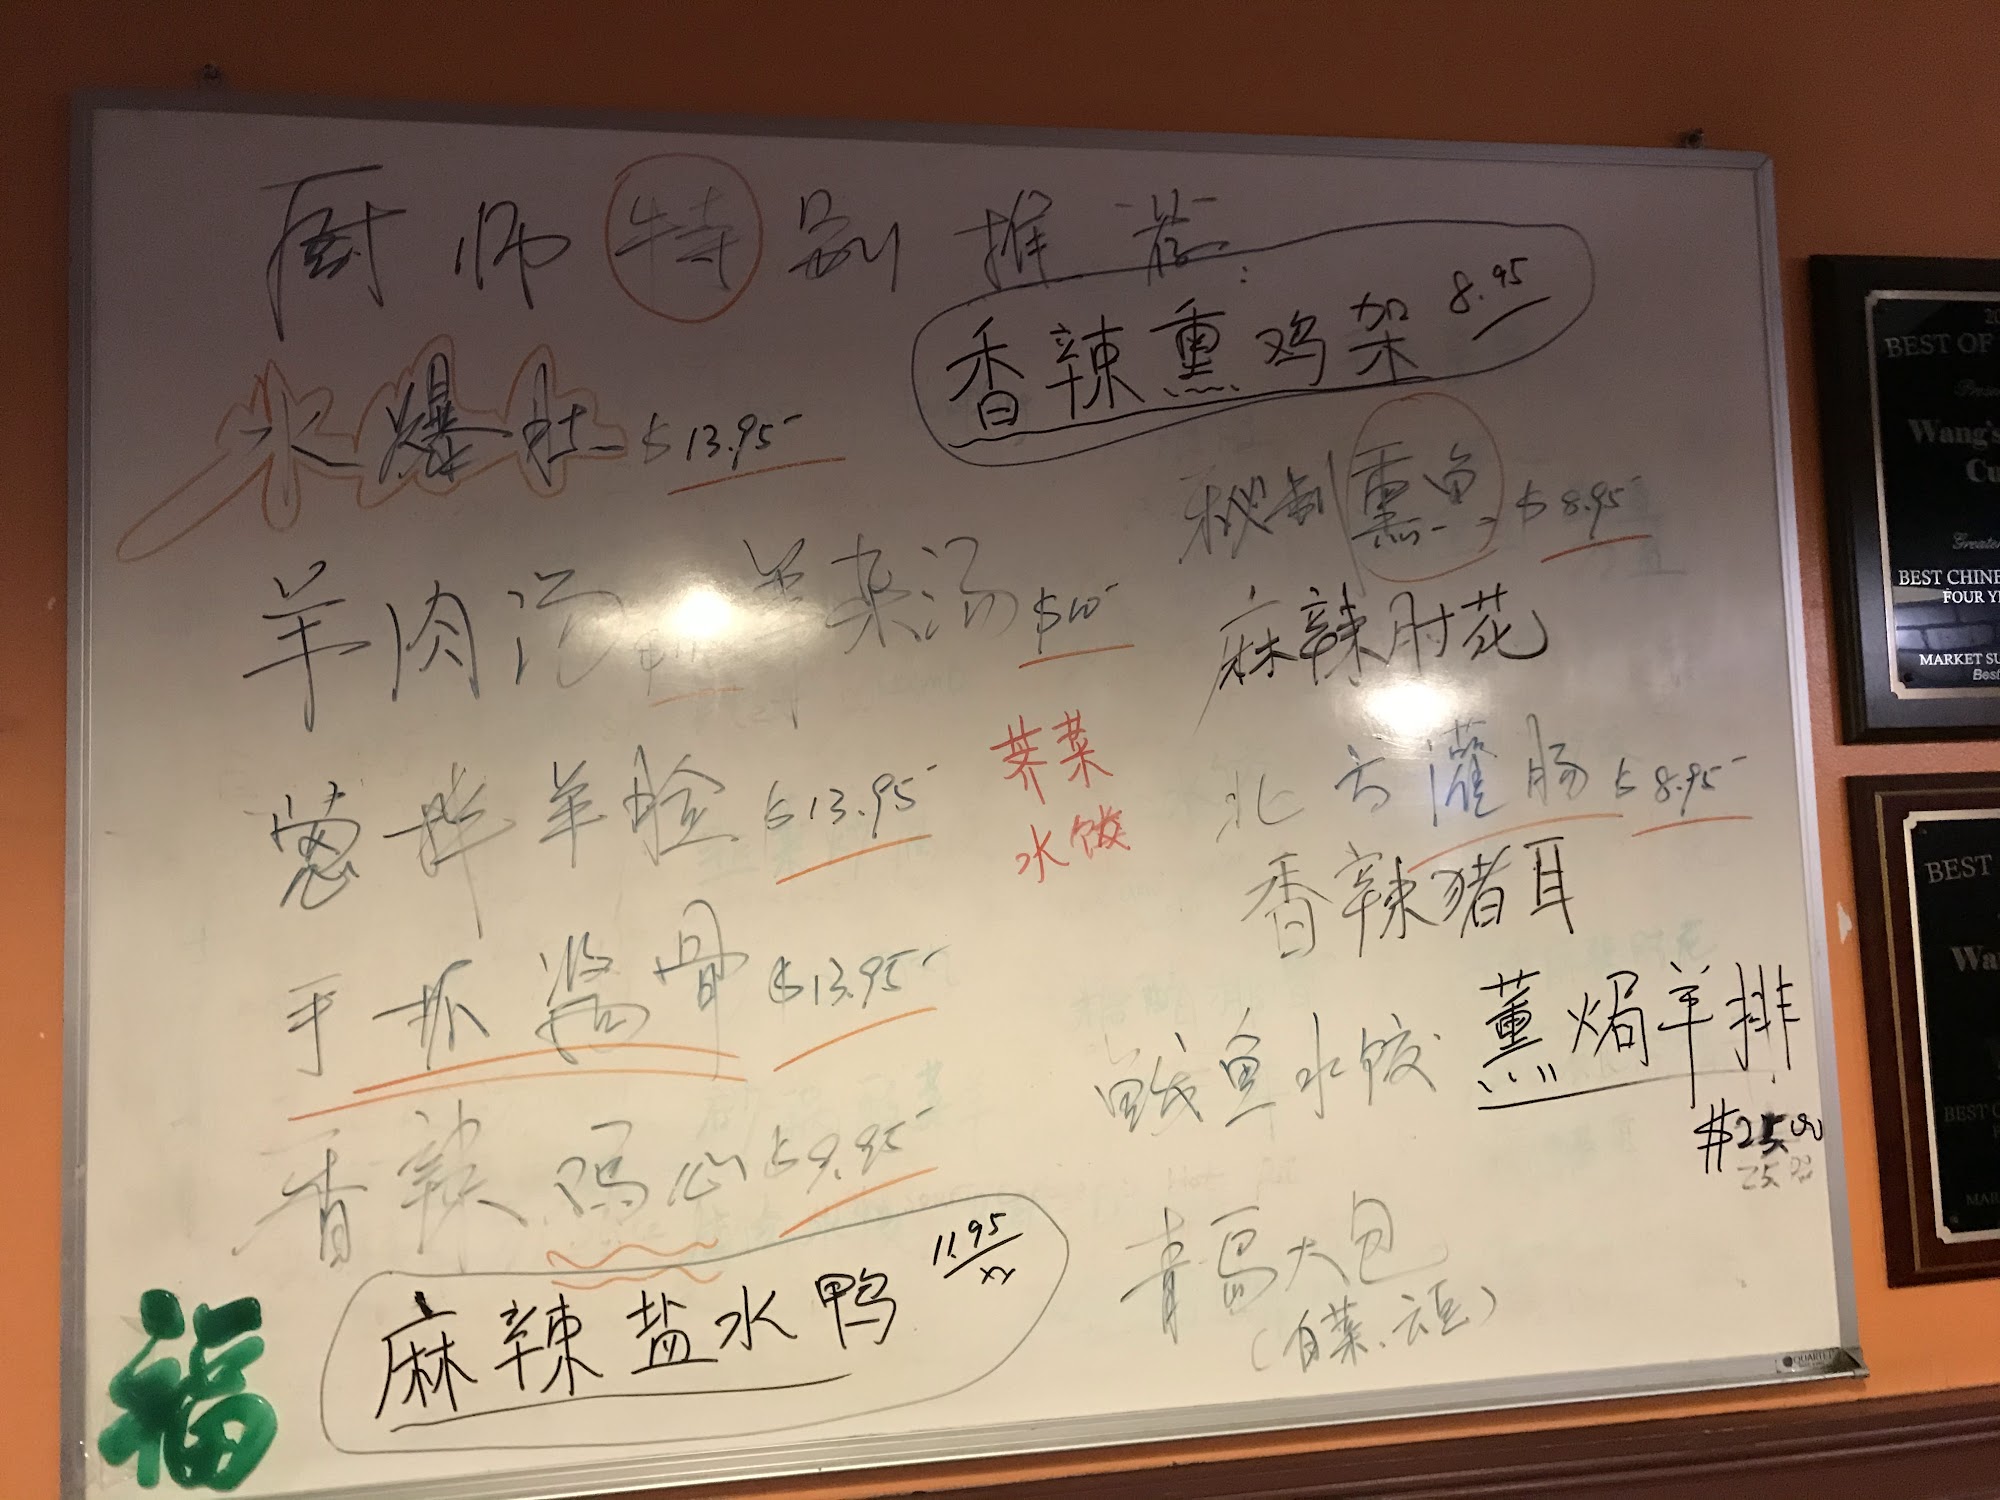 厨师特别推荐:
香辣熏鸡架 8.95
水爆肚 $13.95
秘制熏鱼 $8.95
羊肉汤 羊杂汤 $10
麻辣肘花
荠菜
水饺
葱拌羊脸 $13.95
北方灌肠 $8.95
香辣猪耳
手抓酱骨 $13.95
鲅鱼水饺
薰焗羊排
$25.00
25.00
香辣鸡心 $9.95
青岛大包
(白菜、云豆)
麻辣盐水鸭 11.95
福
QUARTET
BEST OF
Wang's
BEST CHINE
FOUR YE
MARKET SU
Best
BEST
Wa
BEST C